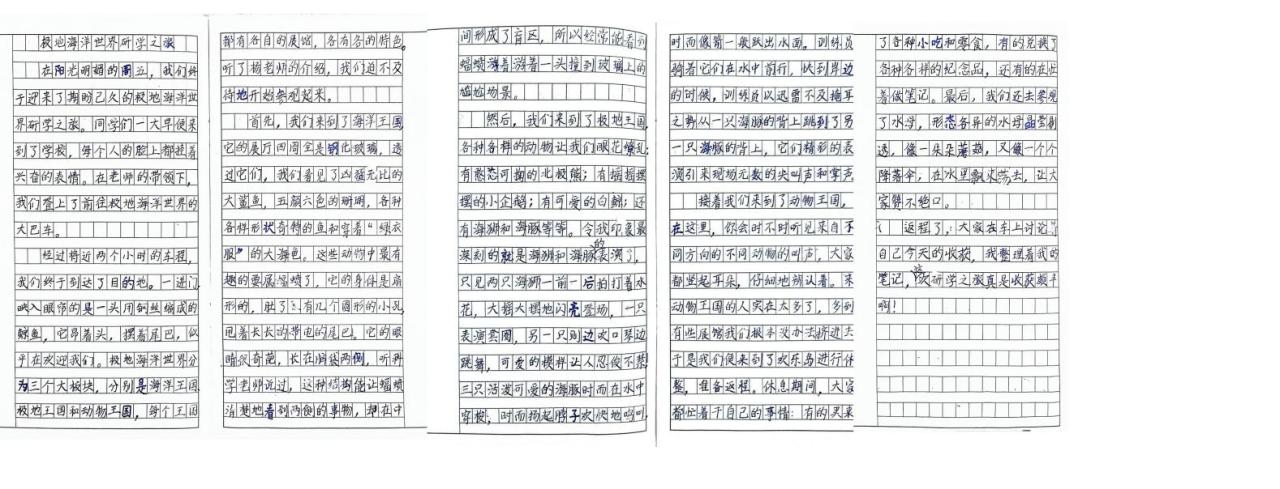 极地海洋世界研学之旅
在阳光明媚的周五，我们终
于迎来了期盼已久的极地海洋世
界研学之旅。同学们一大早便来
到了学校，每个人的脸上都挂着
兴奋的表情。在老师的带领下，
我们登上了前往极地海洋世界的
大巴车。
经过将近两个小时的车程，
我们终于到达了目的地。一进门
映入眼帘的是一头用钢丝编成的
鲸鱼，它昂着头，摆着尾巴，似
乎在欢迎我们。极地海洋世界分
为三个大板块，分别是海洋王国
极地王国和动物王国，每个王国
都有各自的展馆，各有各的特色。
听了杨老师的介绍，我们迫不及
待地开始参观起来。
首先，我们来到了海洋王国，
它的展厅四周全是钢化玻璃，透
过它们，我们看见了凶猛无比的
大鲨鱼，五颜六色的珊瑚，各种
各样形状奇特的鱼和穿着“绿衣
服”的大海龟。这些动物中最有
趣的要属蝠鲼了，它的身体是扁
形的，肚子上有几个圆形的小孔，
甩着长长的带电的尾巴。它的眼
睛很奇葩，长在脑袋两侧，听科
学老师说过，这种结构能让蝠鲼
清楚地看到两侧的事物，却在中
间形成了盲区，所以经常能看到
蝠鲼游着游着一头撞到玻璃上的
尴尬场景。
然后，我们来到了极地王国，
各种各样的动物让我们眼花缭乱：
有憨态可掬的北极熊；有摇摇摆
摆的小企鹅；有可爱的白鲸；还
有海狮和海豚等等。令我印象最
深刻的就是海狮和海豚的表演了，
只见两只海狮一前一后拍打着水
花，大摇大摆地闪亮登场，一只
表演套圈，另一只则边吹口琴边
跳舞，可爱的模样让人忍俊不禁
三只活泼可爱的海豚时而在水中
穿梭，时而扬起脖子欢快地鸣叫，
时而像箭一般跃出水面。训练员
骑着它们在水中前行，快到岸边
的时候，训练员以迅雷不及掩耳
之势从一只海豚的背上跳到了另
一只海豚的背上，它们精彩的表
演引来现场无数的尖叫声和掌声
接着我们来到了动物王国，
在这里，你会时不时听见来自不
同方向的不同动物的叫声，大家
都竖起耳朵，仔细地辨认着。来
动物王国的人实在太多了，多到
有些展馆我们根本没办法挤进去
于是我们便来到了欢乐岛进行休
整，准备返程。休息期间，大家
都忙着干自己的事情：有的买来
了各种小吃和零食，有的兑换了
各种各样的纪念品，还有的在忙
着做笔记。最后，我们还去参观
了水母，形态各异的水母晶莹剔
透，像一朵朵蘑菇，又像一个个
降落伞，在水里飘来荡去，让大
家赞不绝口。
返程了，大家在车上讨论着
自己今天的收获，我整理着我的
笔记，这次研学之旅真是收获颇丰
啊！